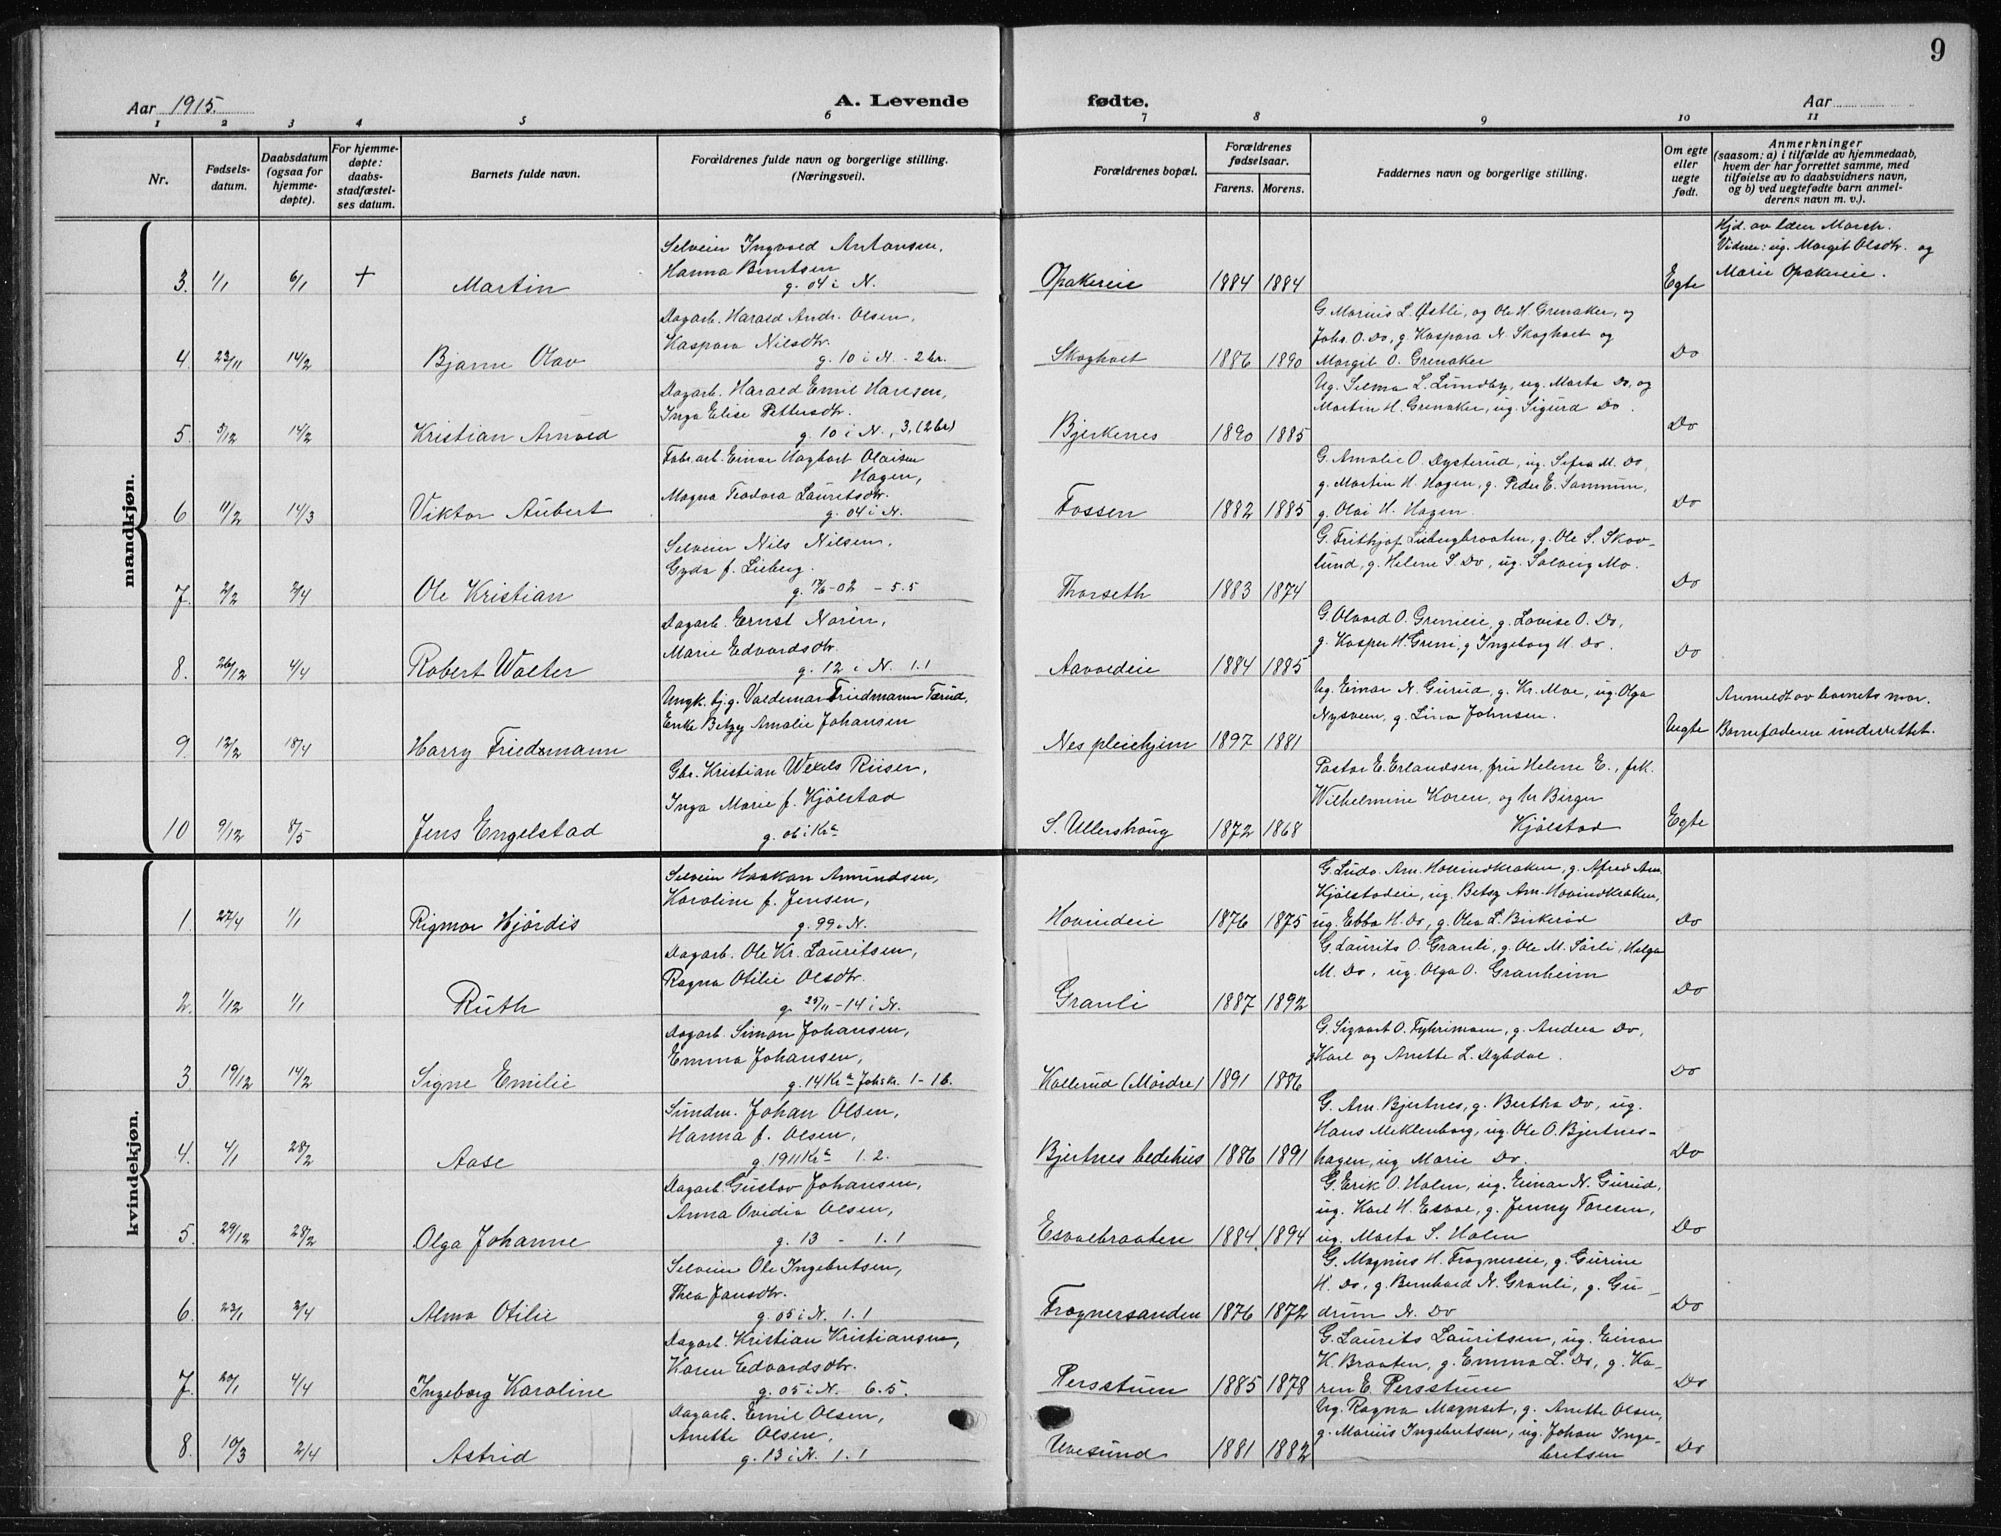 9
Aar 1915.
A. Levende fødte.
Aar
1 2 3 4 5 6 7 8 9 10 11
Nr.
Fødsels-
datum.
Daabsdatum
(ogsaa for
hjemme-
døpte).
For hjemme-
døpte:
daabs-
stadfæstel-
ses datum.
Barnets fulde navn.
Forældrenes fulde navn og borgerlige stilling.
(Næringsvei).
Forældrenes bopæl.
Forældrenes
fødselsaar.
Farens. Morens.
Faddernes navn og borgerlige stilling.
Om egte
eller
uegte
født.
Anmerkninger
(saasom: a) i tilfælde av hjemmedaab,
hvem der har forrettet samme, med
tilføielse av to daabsvidners navn,
og b) ved uegtefødte barn anmel-
derens navn m. v.).
mandkjøn.
3. 1/1 6/1 + Martin
Selveier Ingvald Antonsen,
Hanna Berntsen
g. 04 i N.
Opakereie 1884 1884
Egte
Hjd. av læru March.
Vidner: ug. Margit Olsdtr. og
Marie Opakereie.
4. 23/11 14/2 Bjarne Olav
Dagarb. Harald Andr. Olsen,
Kaspara Nilsdtr.
g. 10 i N. - 2 br.
Skogholt 1886 1890
G. Marius L. Østli, og Ole H. Grenaker, og
Johs. O. Do, g. Kaspara N. Skogholt og
Margit O. Grenaker
Do
5. 5/12 14/2 Kristian Arnold
Dagarb. Harald Emil Hansen,
Inga Elise Pettersdtr.
g. 10 i N., 3, (2 br)
Bjerkenes 1890 1885
Ug. Selma L. Lundby, ug. Marta Do, og
Martin H. Grenaker, ug. Sigurd Do.
Do
6 11/2 14/3 Viktor Aubert
Fabr.arb. Einar Hagbart Olaisen
Hagen,
Magna Teodora Lauritsdtr.
g. 04 i N.
Fossen 1882 1885
G. Amalie O. Dysterud, ug. Sefra M. Do,
g. Marten H. Hagen, g. Peder E. Sannum,
g. Olai H. Hagen.
Do
7. 2/2 2/4 Ole Kristian
Selveier Nils Nilsen,
Gyda f. Lieberg.
g. 17/6-02 - 5.5
Thorseth 1883 1874
G. Frithjof Liebergbraaten, g. Ole S. Skov-
lund, g. Helene S. Do, ug. Solveig Mo.
Do
8. 26/12 4/4 Robert Walter
Dagarb. Ernst Norén,
Marie Edvardsdtr.
g. 12 i N. 1.1
Aavoldeie 1884 1885
G. Olvard O. Grenieie, g. Lovise O. Do,
g. Kasper H. Greni, g Ingeborg H. Do.
Do
9 12/2 18/4 Harry Friedemann
Ungk. bj. g. Valdemar Friedmann Tærud,
Enke Betzy Amalie Johansen
Nes pleiehjem 1897 1881
Ug. Einar N. Gurud, g. Kr. Moe, ug. Olga
Nysveen, g. Lina Johnsen.
Uegte
Anmeldt av barnets mor.
Barnefaderen underrettet.
10 9/12 8/5 Jens Engelstad
Gbr. Kristian Wexels Riiser,
Inga Marie f. Kjølstad
g. 06 i Kra
S. Ullershoug 1872 1868
Pastor E. Erlandsen, fru Helene E., frk.
Wilhelmine Koren, og hr Birger
Kjølstad
Egte
kvindekjøn.
1 27/4 1/1 Rigmor Hjørdis
Selveier Haakon Amundsen,
Karoline f. Jensen,
g. 99 i N.
Hovindeie 1876 1875
G. Ludv. Am. Hovindkraken, g. Alfred Am.
Kjølstadeie, ug. Betsy Am. Hovindkraken,
ug. Ebba H. Do, g. Olea L. Birkerød
Do
2. 1/12 1/1 Ruth
Dagarb. Ole Kr. Lauritsen,
Ragna Otilie Olsdtr.
g. 29/11 - 14 i N.
Granli 1887 1892
G. Laurits O. Granli, g. Ole M. Sørli, Helga
M. Do, ug. Olga O. Granheim
Do
3 19/12 14/2 Signe Emilie
Dagarb. Simon Johansen,
Emma Johansen,
g. 14 Kra Johsk. 1-16.
Kallerud (Mordre) 1891 1886
G. Sigvart O. Fyhrimoen, g. Andrea Do,
g Karl og Anette L. Dybdal.
Do
4. 4/1 28/2 Aase
Sundm. Johan Olsen,
Hanna f. Olsen,
g. 1911 Kra 1.2.
Bjertnes bedehus 1886 1891
G. Am. Bjertnes, g. Bertha Do, ug.
Hans Meklenborg, ug. Ole O. Bjertnes-
hagen, ug Marie Do.
Do
5. 29/12 28/2 Olga Johanne
Dagarb. Gustav Johansen,
Anna Ovidia Olsen,
g. 13 - 1.1
Esvalbraaten 1884 1894
G. Erik O. Holen, ug. Einar N. Gurud,
ug. Karl H. Esval, g. Jenny Toresen,
ug. Marta S. Holen
Do
6. 23/1 2/4 Alma Otilie
Selveier Ole Ingebretsen,
Thea Jansdtr.
g. 05 i N. 1.1
Frognersanden 1876 1872
G. Magnus H. Frognereie, g. Gurine
H. Do, g. Bernhard N. Granli, g. Gu-
drun N. Do
Do
7. 20/1 4/4 Ingeborg Karoline
Dagarb. Kristian Kristiansen,
Karen Edvardsdtr.
g. 05 i N. 6.5.
Persstuen 1885 1878
G. Laurits Lauritsen, ug. Einar
K. Braaten, g. Emma L. Do, g. Ka-
ren E. Persstuen
Do
8. 10/3 2/4 Astrid
Dagarb. Emil Olsen,
Anette Olsen,
g. 13 i N. 1.1
Uvesund 1881 1882
Ug. Ragna Magnset, g. Anette Olsen,
g. Marius Ingebretsen, ug. Johan Inge-
bretsen
Do